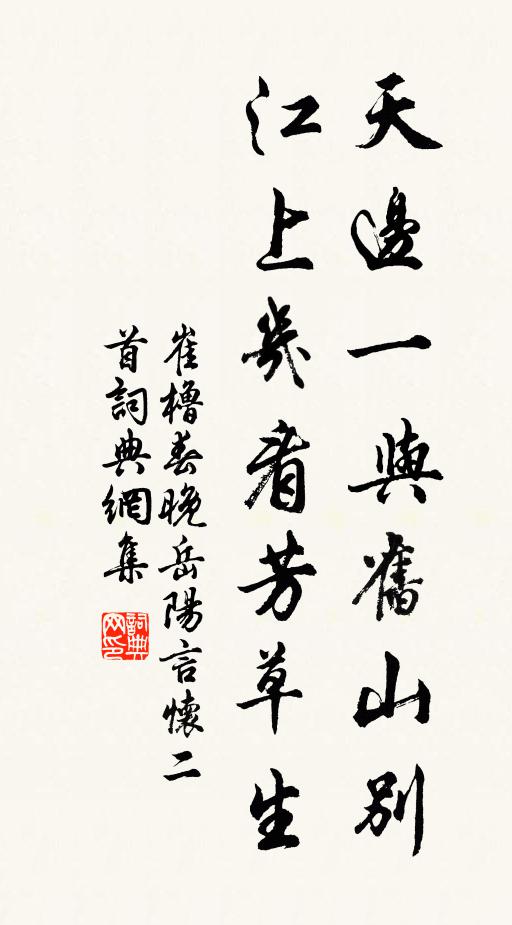 天邊一與舊山別
江上幾看芳草生
崔櫓春晚岳陽言懷二
首詞典網集
詞典网印